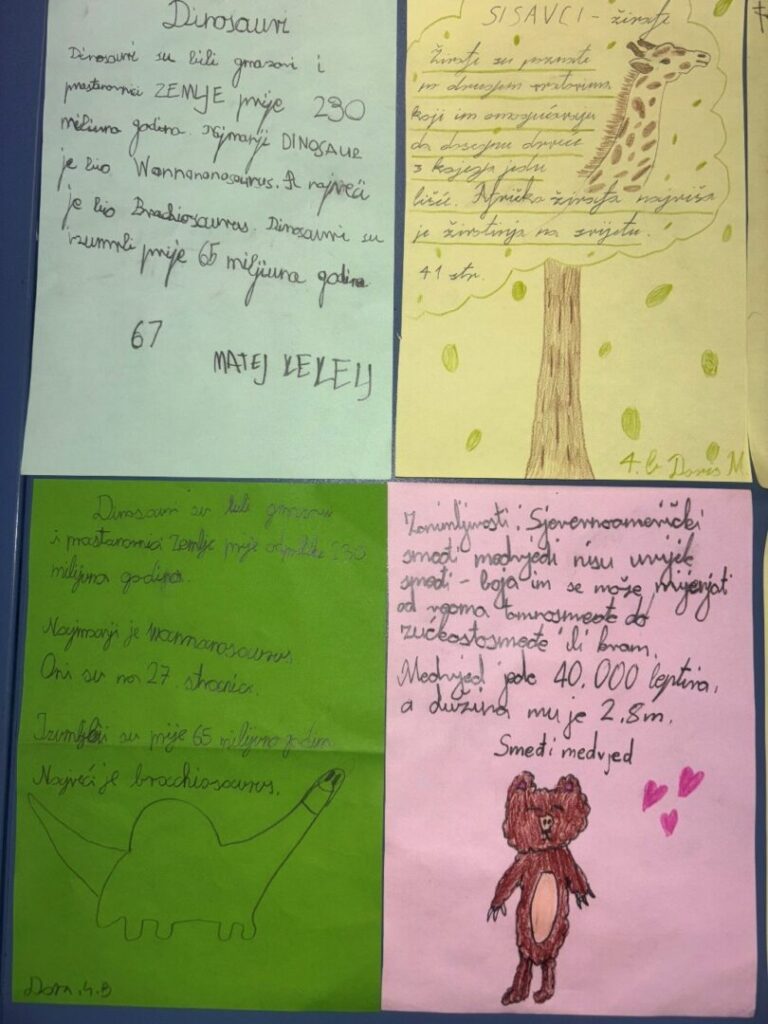 Dinosauri
Dinosauri su bili gmazovi i
prastanovnici ZEMLJE prije 230
milijuna godina. Najmanji DINOSAUR
je bio Wannanosaurus. A najveći
je bio Brachiosaurus. Dinosauri su
izumrli prije 65 milijuna godina
67
MATEJ
SISAVCI - žirafe
Žirafe su poznate
po dugom vratovima
koji im omogućavaju
da dosegnu drveće
s kojega jedu
lišće. Afrička žirafa najviša
je životinja na svijetu.
41 str.
4. b Doris M.
Dinosauri su bili gmazovi
i prastanovnici Zemlje prije otprilike 230
milijuna godina.
Najmanji je wannanosaurus.
Oni su na 27 stranici.
Izumrli su prije 65 milijuna godina
Najveći je brachiosaurus.
Dora 4.B
Zanimljivosti: Sjevernoamerički
smeđi medvjedi nisu uvijek
smeđi - boja im se može mijenjati
od veoma tamnosmeđe do
žućkastosmeđe ili krem.
Medvjed jede 40.000 leptira,
a dužina mu je 2.8m.
Smeđi medvjed